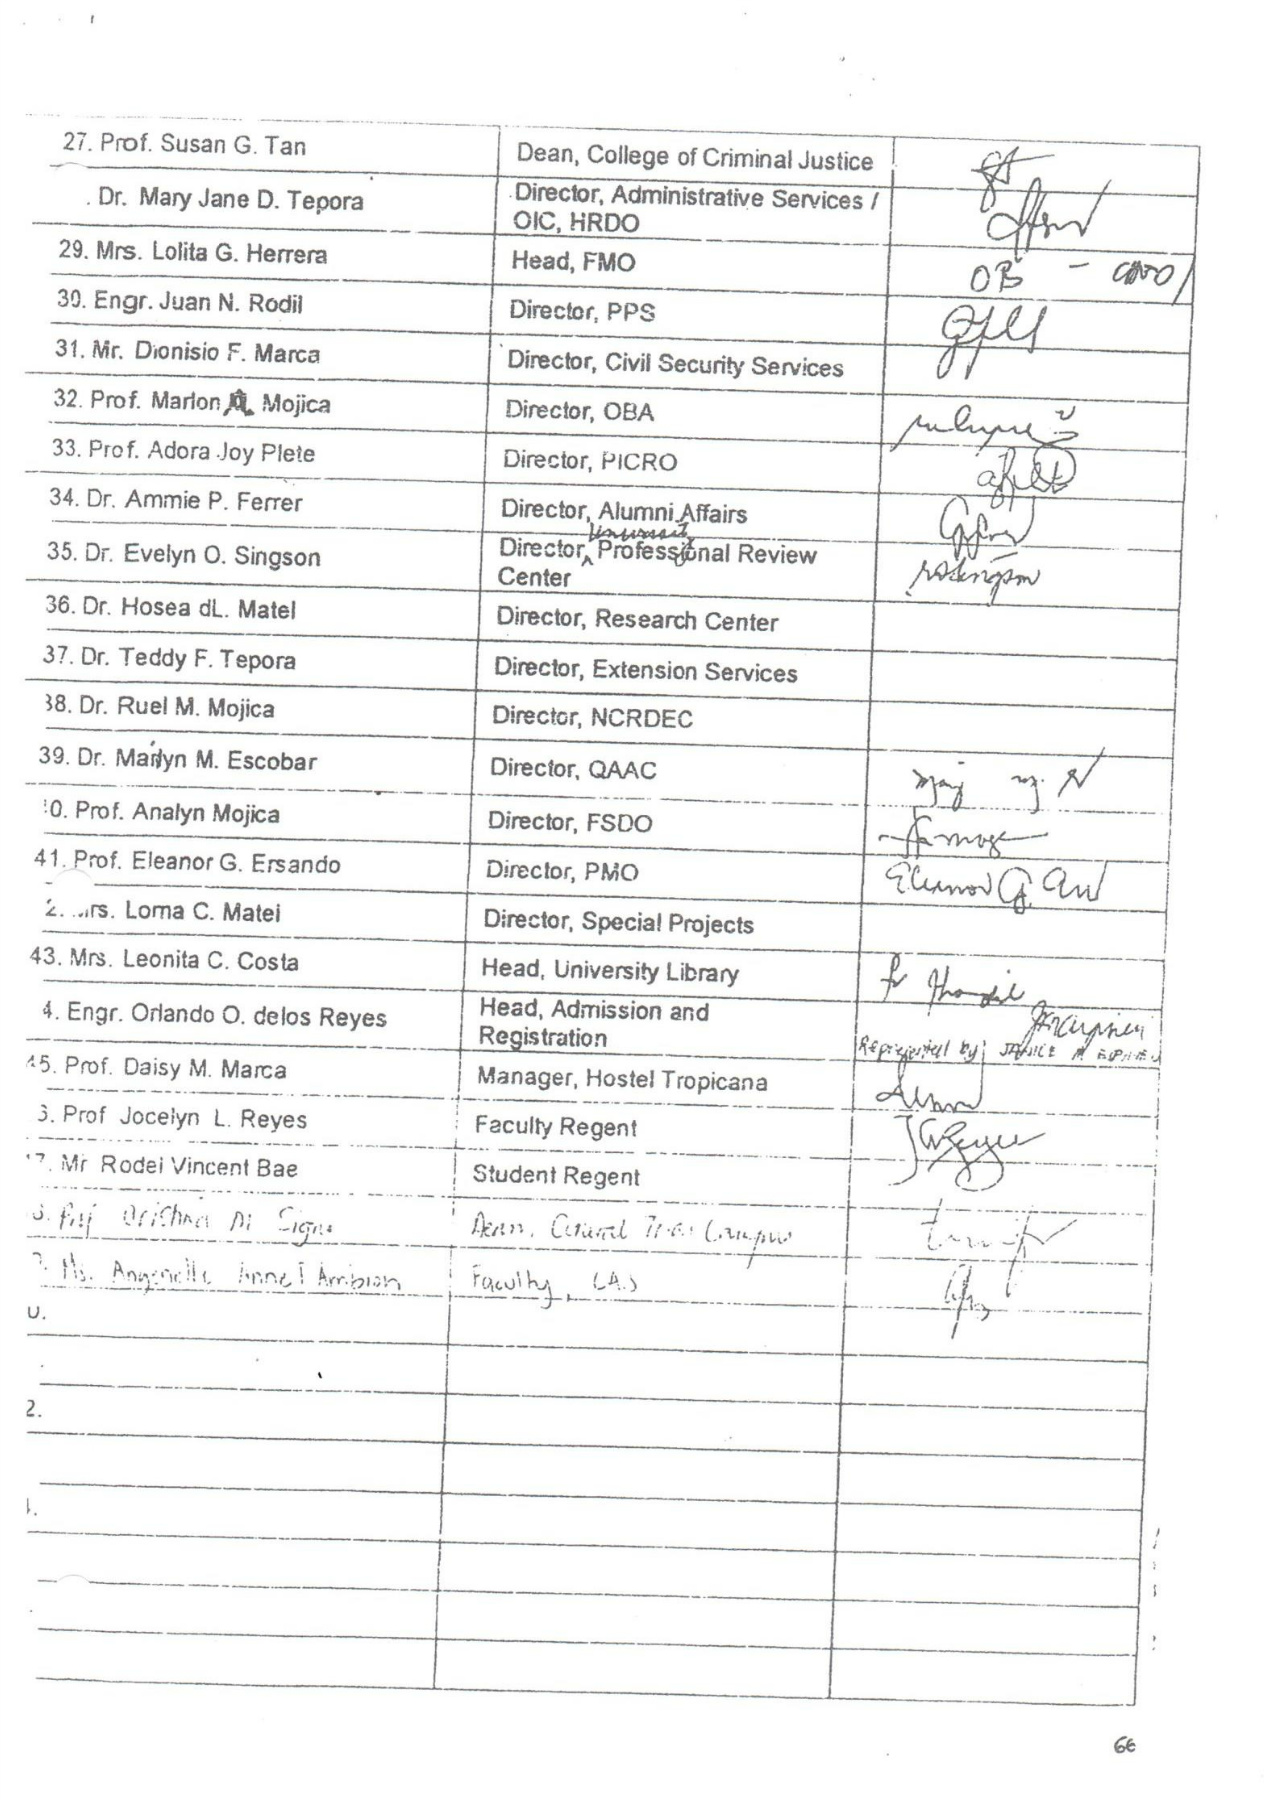 27. Prof. Susan G. Tan
Dean, College of Criminal Justice
. Dr. Mary Jane D. Tepora
Director, Administrative Services /
OIC, HRDO
29. Mrs. Lolita G. Herrera
Head, FMO
OB -
30. Engr. Juan N. Rodil
Director, PPS
31. Mr. Dionisio F. Marca
Director, Civil Security Services
32. Prof. Marlon A. Mojica
Director, OBA
33. Prof. Adora Joy Plete
Director, PICRO
34. Dr. Ammie P. Ferrer
Director, Alumni Affairs
35. Dr. Evelyn O. Singson
University
Director, Professional Review
Center
36. Dr. Hosea dL. Matel
Director, Research Center
37. Dr. Teddy F. Tepora
Director, Extension Services
38. Dr. Ruel M. Mojica
Director, NCRDEC
39. Dr. Marilyn M. Escobar
Director, QAAC
0. Prof. Analyn Mojica
Director, FSDO
41. Prof. Eleanor G. Ersando
Director, PMO
2. rs. Lorna C. Matel
Director, Special Projects
43. Mrs. Leonita C. Costa
Head, University Library
4. Engr. Orlando O. delos Reyes
Head, Admission and
Registration
Represented by: JANICE
45. Prof. Daisy M. Marca
Manager, Hostel Tropicana
6. Prof Jocelyn L. Reyes
Faculty Regent
7. Mr Rodel Vincent Bae
Student Regent
Prof Cristina M. Signo
Dean, Campus
Ms. Anne T Ambion
Faculty, CAS
0.
2.
66